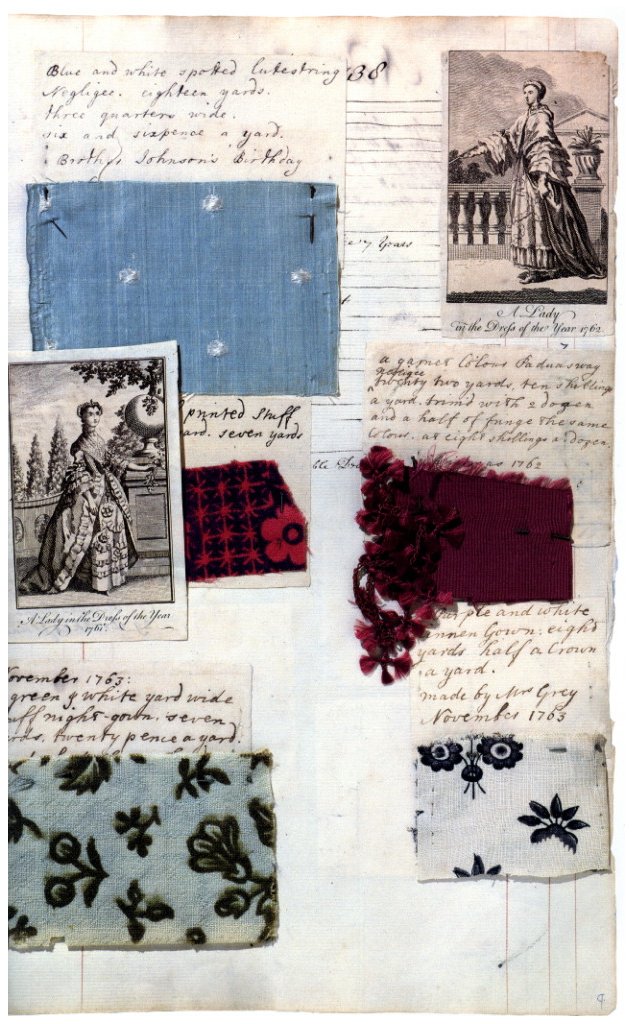 Blue and white spotted lutestring
Negligee. eighteen yards.
three quarters wide.
six and sixpence a yard.
Brother Johnson's Birthday
38
Years
A Lady
in the Dress of the Year 1762.
a garnet Colour Paduasway
negligee
twenty two yards, ten shillings
a yard. trim'd with 2 dozen
and a half of fringe the same
Colour. at eight shillings a dozen
1762
printed Stuff
yard. seven yards
A Lady in the Dress of the Year
1761.
purple and white
Linnen Gown. eight
yards half a Crown
a yard.
made by Mrs Grey
November 1763
November 1763:
green & white yard wide
stuff night-gown. seven
yards, twenty pence a yard.